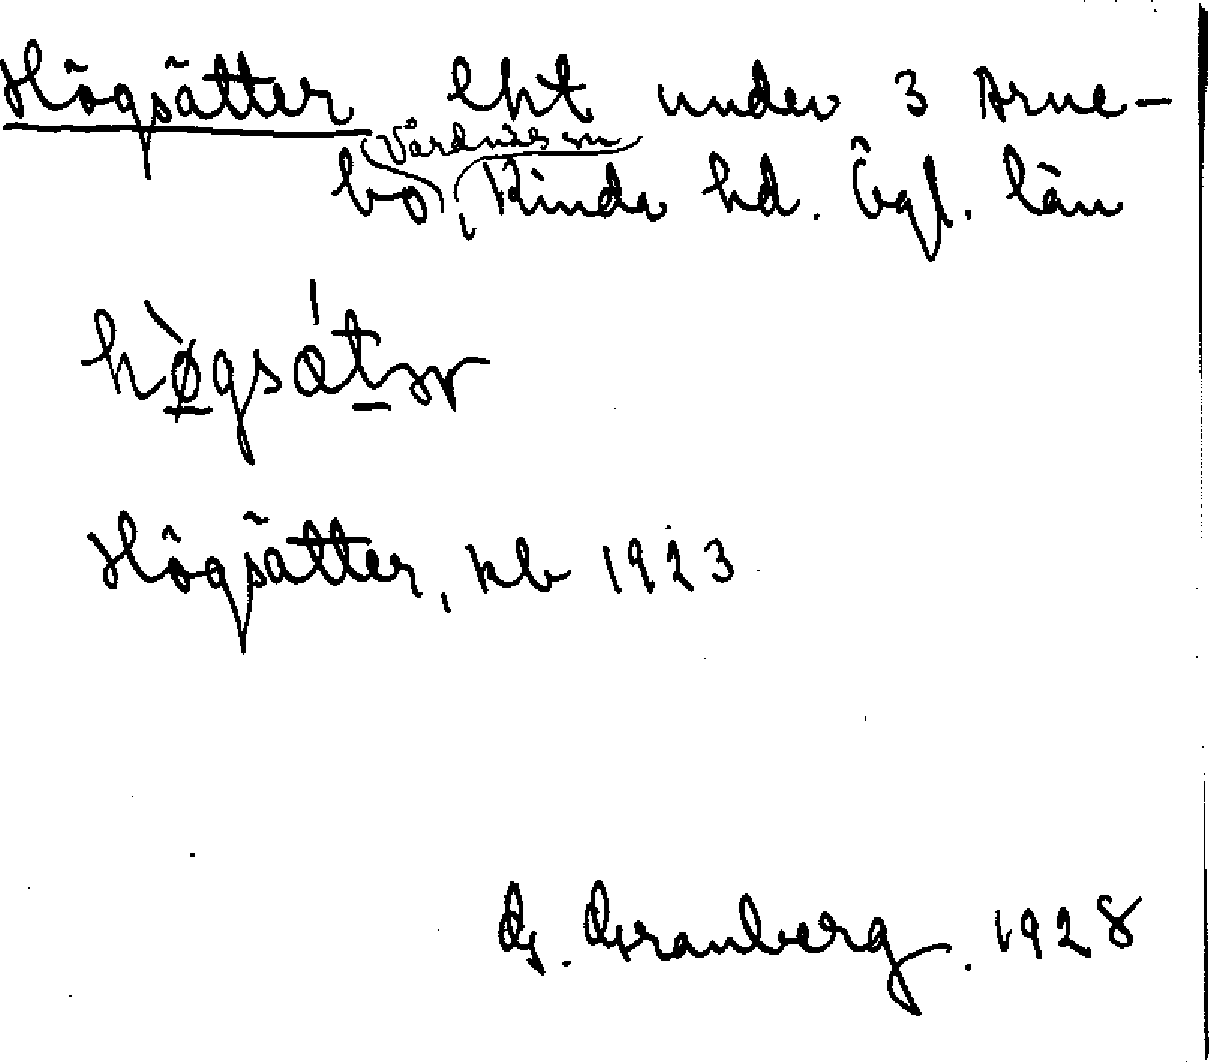 Högsätter lht under 3 Arne-
Vårdnäs sn
bo, Kinda hd. Ögl. län
hø̀gsátər
Högsätter, kb 1923
G. Granberg. 1928